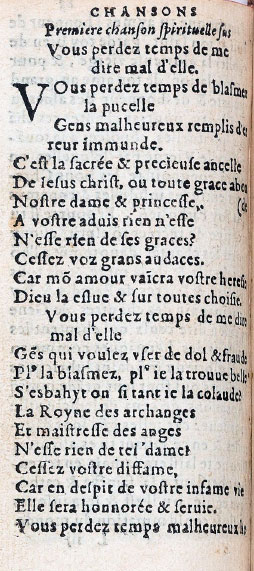 CHANSONS
Premiere chanson spirituelle sus
Vous perdez temps de me
dire mal d'elle.
VOus perdez temps de blasmer
la pucelle
Gens malheureux remplis d'er
reur immunde.
C'est la sacrée & precieuse ancelle
De Iesus christ, ou toute grace abon
Nostre dame & princesse, (de
A vostre aduis rien n'esse
N'esse rien de ses graces?
Cessez voz grans audaces.
Car mõ amour vaicra vostre heresie
Dieu la eslue & sur toutes choisie.
Vous perdez temps de me dire
mal d'elle
Gẽs qui voulez vser de dol & fraude
Plꝰ la blasmez, plꝰ ie la trouue belle
S'esbahyt on si tant ie la colaude?
La Royne des archanges
Et maistresse des anges
N'esse rien de tel dame?
Cessez vostre diffame,
Car en despit de vostre infame vie
Elle sera honnorée & seruie.
Vous perdez temps malheureux